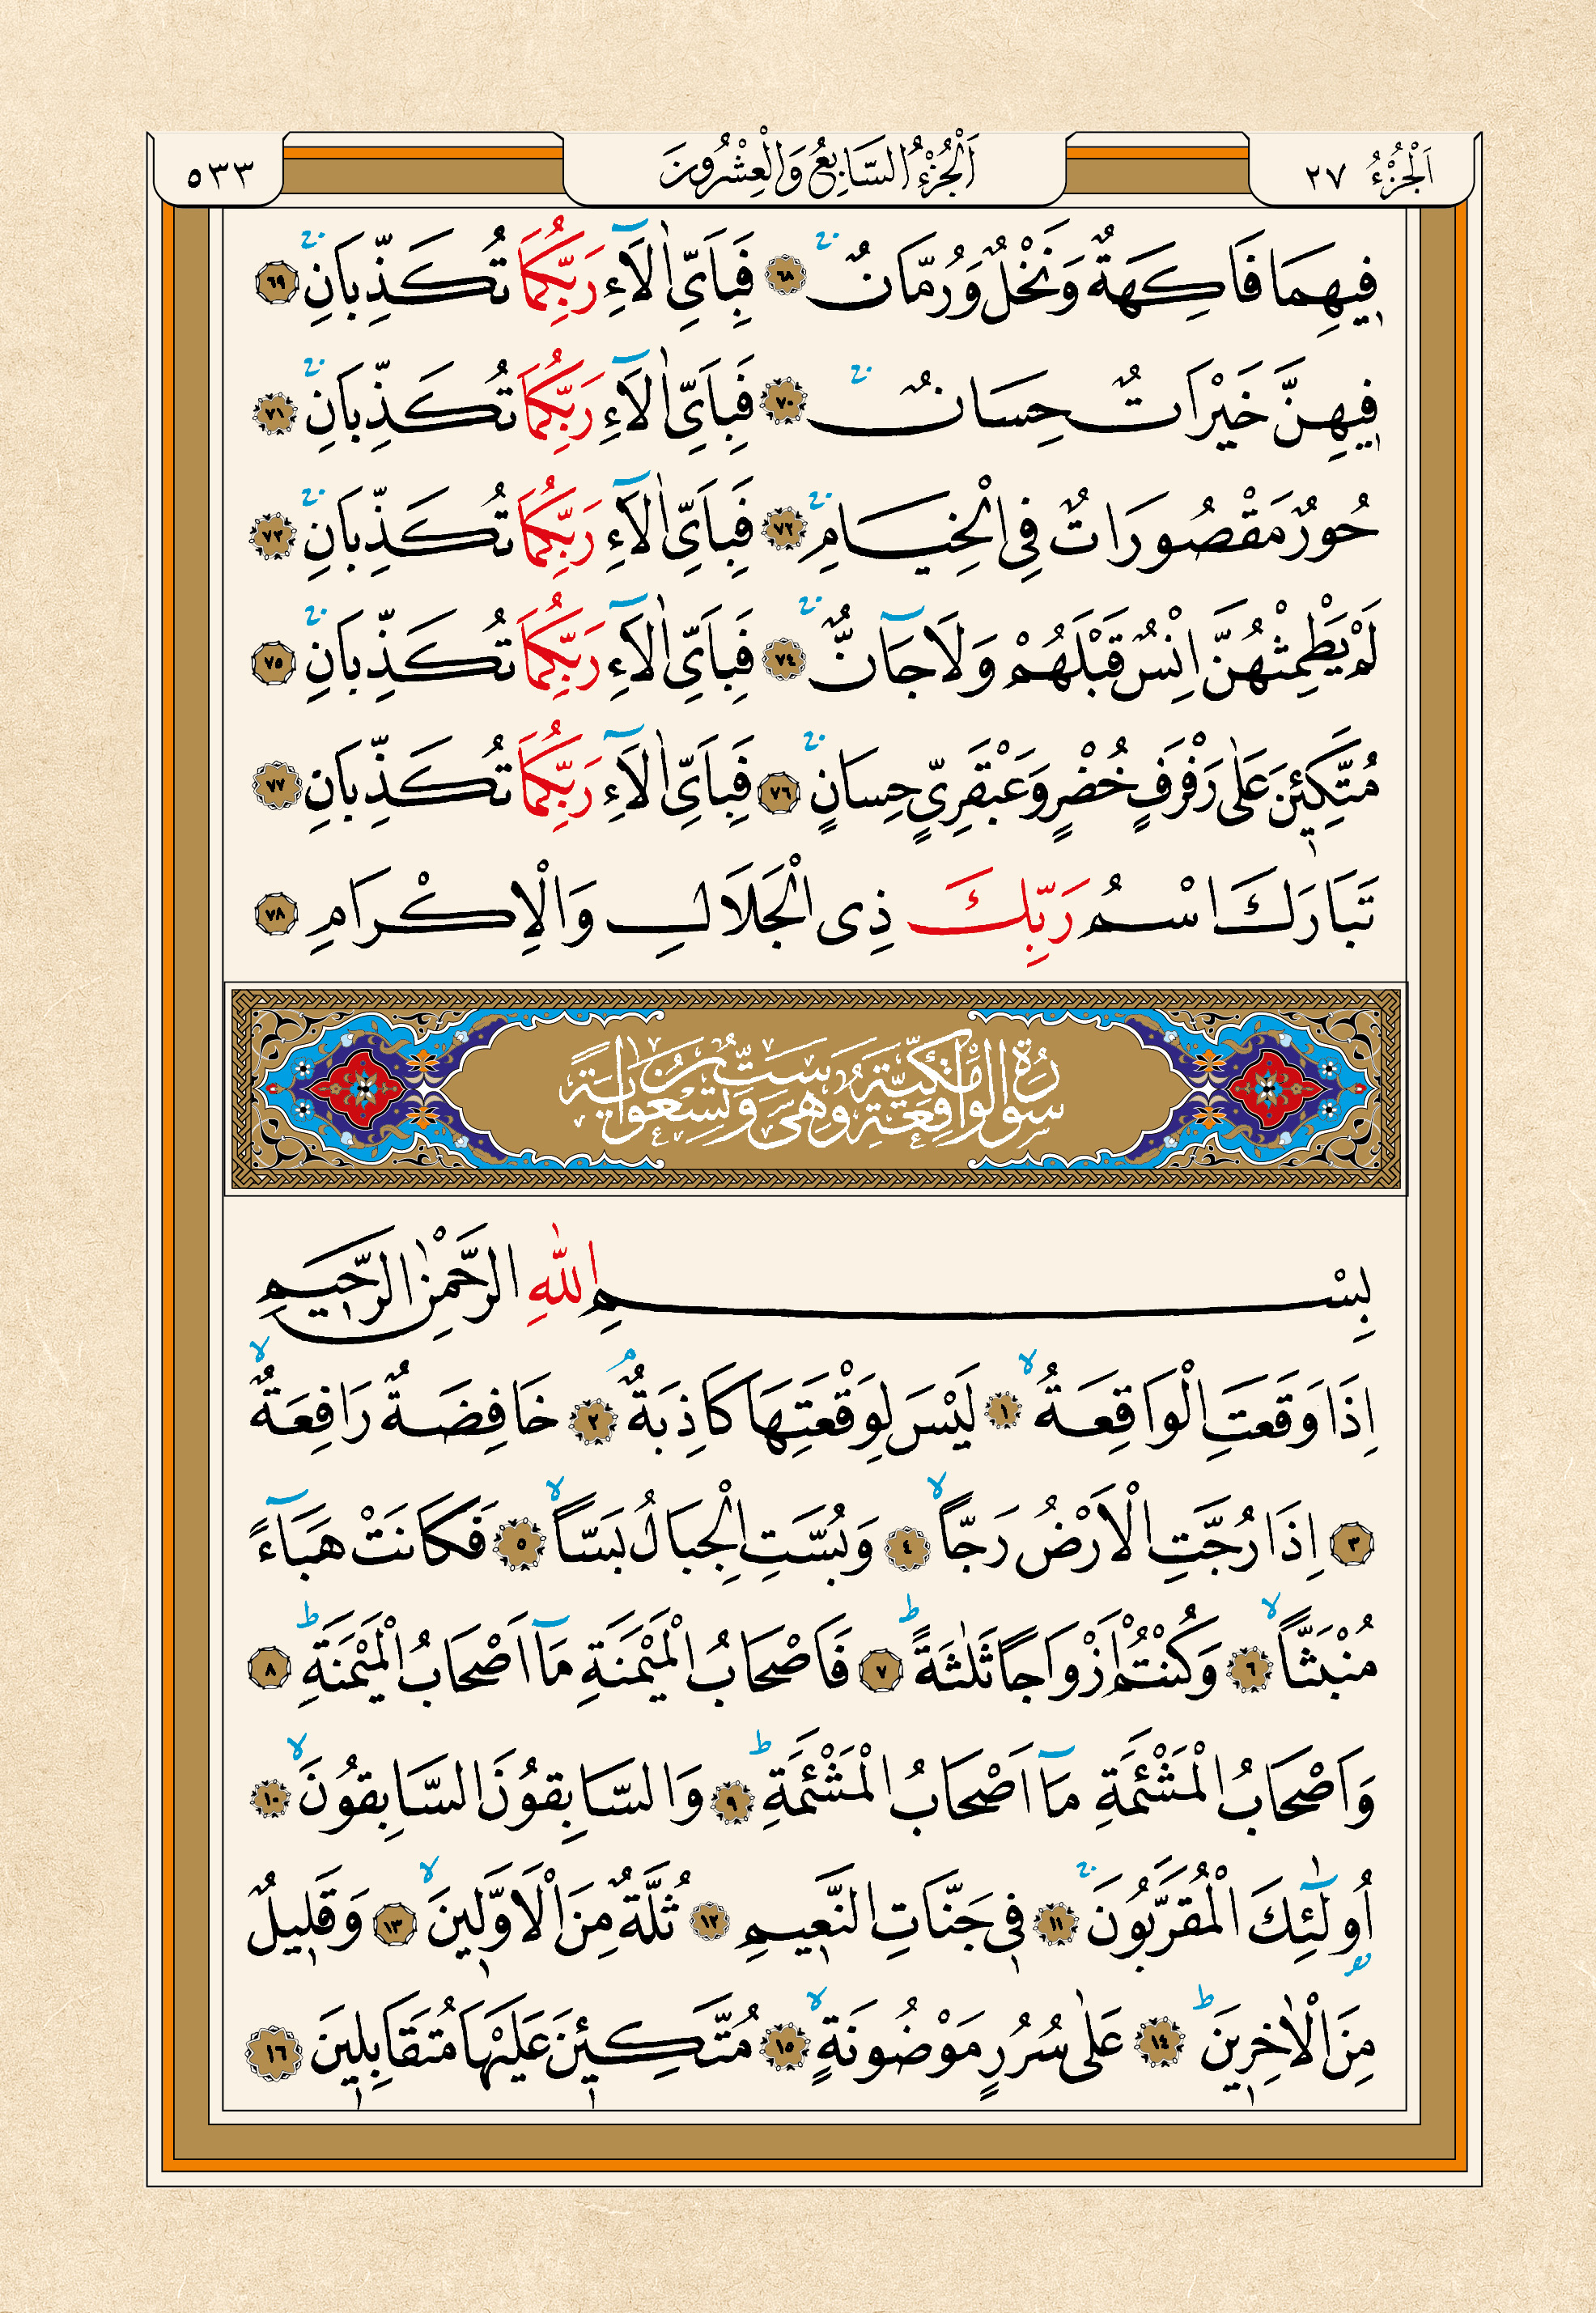 اَلْجُزْءُ ٢٧
اَلْجُزْءُ السَّابِعُ وَالْعِشْرُونَ
٥٣٣
فِيهِمَا فَاكِهَةٌ وَنَخْلٌ وَرُمَّانٌۚ ٦٨ فَبِاَىِّ اٰلَٓاءِ رَبِّكُمَا تُكَذِّبَانِۚ ٦٩
فِيهِنَّ خَيْرَاتٌ حِسَانٌۚ ٧٠ فَبِاَىِّ اٰلَٓاءِ رَبِّكُمَا تُكَذِّبَانِۚ ٧١
حُورٌ مَقْصُورَاتٌ فِى الْخِيَامِۚ ٧٢ فَبِاَىِّ اٰلَٓاءِ رَبِّكُمَا تُكَذِّبَانِۚ ٧٣
لَمْ يَطْمِثْهُنَّ اِنْسٌ قَبْلَهُمْ وَلَا جَٓانٌّۚ ٧٤ فَبِاَىِّ اٰلَٓاءِ رَبِّكُمَا تُكَذِّبَانِۚ ٧٥
مُتَّكِـِٔينَ عَلٰى رَفْرَفٍ خُضْرٍ وَعَبْقَرِىٍّ حِسَانٍۚ ٧٦ فَبِاَىِّ اٰلَٓاءِ رَبِّكُمَا تُكَذِّبَانِ ٧٧
تَبَارَكَ اسْمُ رَبِّكَ ذِى الْجَلَالِ وَالْاِكْرَامِ ٧٨
سُورَةُ الْوَاقِعَةِ مَكِّيَّةٌ وَهِىَ سِتٌّ وَتِسْعُونَ اٰيَةً
بِسْمِ اللّٰهِ الرَّحْمٰنِ الرَّحِيمِ
اِذَا وَقَعَتِ الْوَاقِعَةُۙ ١ لَيْسَ لِوَقْعَتِهَا كَاذِبَةٌۢ ٢ خَافِضَةٌ رَافِعَةٌۙ
٣ اِذَا رُجَّتِ الْاَرْضُ رَجًّاۙ ٤ وَبُسَّتِ الْجِبَالُ بَسًّاۙ ٥ فَكَانَتْ هَبَٓاءً
مُنْبَثًّاۙ ٦ وَكُنْتُمْ اَزْوَاجًا ثَلٰثَةًۜ ٧ فَاَصْحَابُ الْمَيْمَنَةِ مَٓا اَصْحَابُ الْمَيْمَنَةِۜ ٨
وَاَصْحَابُ الْمَشْـَٔمَةِ مَٓا اَصْحَابُ الْمَشْـَٔمَةِۜ ٩ وَالسَّابِقُونَ السَّابِقُونَۙ ١٠
اُو۬لٰٓئِكَ الْمُقَرَّبُونَۚ ١١ فِى جَنَّاتِ النَّعِيمِ ١٢ ثُلَّةٌ مِنَ الْاَوَّلِينَۙ ١٣ وَقَلِيلٌ
مِنَ الْاٰخِرِينَۜ ١٤ عَلٰى سُرُرٍ مَوْضُونَةٍۙ ١٥ مُتَّكِـِٔينَ عَلَيْهَا مُتَقَابِلِينَ ١٦